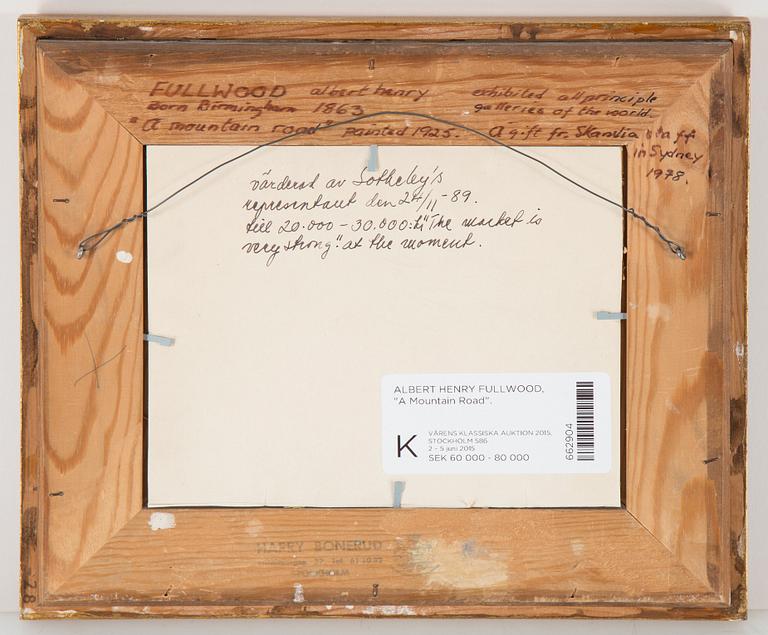 FULLWOOD albert henry
Born Birmingham 1863
"A mountain road" painted 1925.
exhibited all principle
galleries of the world.
A gift fr. Skandia staff
in Sydney
1978.
värderad av Sotheby's
representant den 24/11 -89.
till 20.000 - 30.000:- "The market is
very strong" at the moment.
ALBERT HENRY FULLWOOD,
"A Mountain Road".
K
VÅRENS KLASSISKA AUKTION 2015,
STOCKHOLM 586
2 - 5 juni 2015
SEK 60 000 - 80 000
662904
HARRY BONERUD
STOCKHOLM